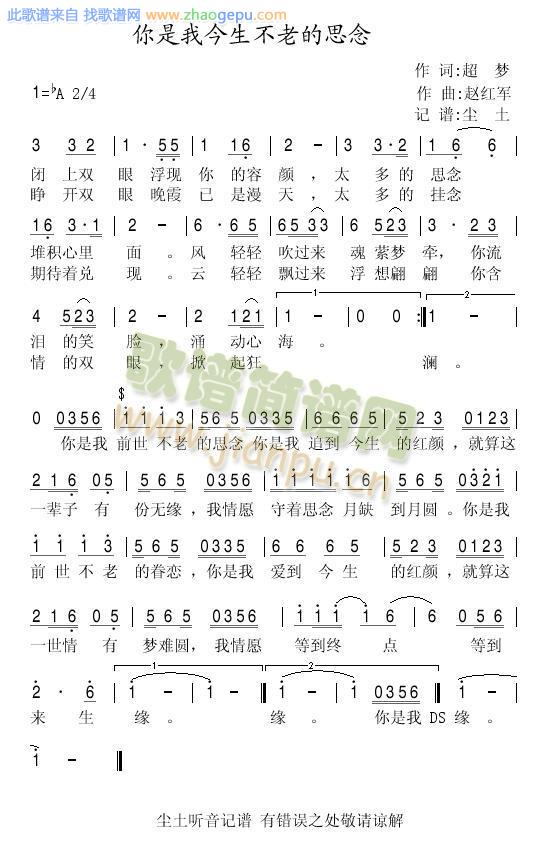 此歌谱来自 找歌谱网 www.zhaogepu.com
你是我今生不老的思念
作 词:超 梦
1=♭A 2/4
作 曲:赵红军
记 谱:尘 土
3 3 2 | 1 · 5 5 | 1 1 6 | 2 - | 3 3 · 2 | 1 6 6 |
闭 上双 眼 浮现 你 的容 颜 ，太 多的 思念
睁 开双 眼 晚霞 已 是漫 天 ，太 多的 挂念
1 6 3 · 1 | 2 - | 6 · 6 5 | 6 5 3 3 | 6 5 2 3 | 3 · 2 3 |
堆积心里 面 。风 轻轻 吹过来 魂 萦梦 牵，你流
期待着兑 现 。云 轻轻 飘过来 浮 想翩 翩 你含
4 5 2 3 | 2 - | 2 1 2 1 | 1 - | 0 0 :| 1 - |
1
2
泪 的笑 脸 ，涌 动心 海 。
情 的双 眼 ，掀 起狂 澜 。
$
0 0 3 5 6 | 1 1 1 3 | 5 6 5 0 3 3 5 | 6 6 6 5 | 5 2 3 0 1 2 3 |
你是我 前世 不老 的思念 你是我 追到 今生 的红颜，就算这
2 1 6 0 5 | 5 6 5 0 3 5 6 | 1 1 1 1 6 1 | 5 6 5 0 3 2 1 |
一辈子 有 份无缘，我情愿 守着思念 月缺 到月圆。你是我
1 1 1 3 | 5 6 5 0 3 5 6 | 6 6 6 5 | 5 2 3 0 1 2 3 |
前 世 不 老 的眷恋，你是我 爱到 今 生 的红颜，就算这
2 1 6 0 5 | 5 6 5 0 3 5 6 | 1 1 1 1 6 | 6 6 5 |
一世情 有 梦难圆，我情愿 等到终 点 等到
1
2
2 · 6 | 1 - | 1 - :| 1 - | 1 0 3 5 6 | 1 - |
来 生 缘 。 缘 。 你是我 DS 缘 。
1 - ‖
歌谱简谱网
www.jianpu.cn
尘土听音记谱 有错误之处敬请谅解